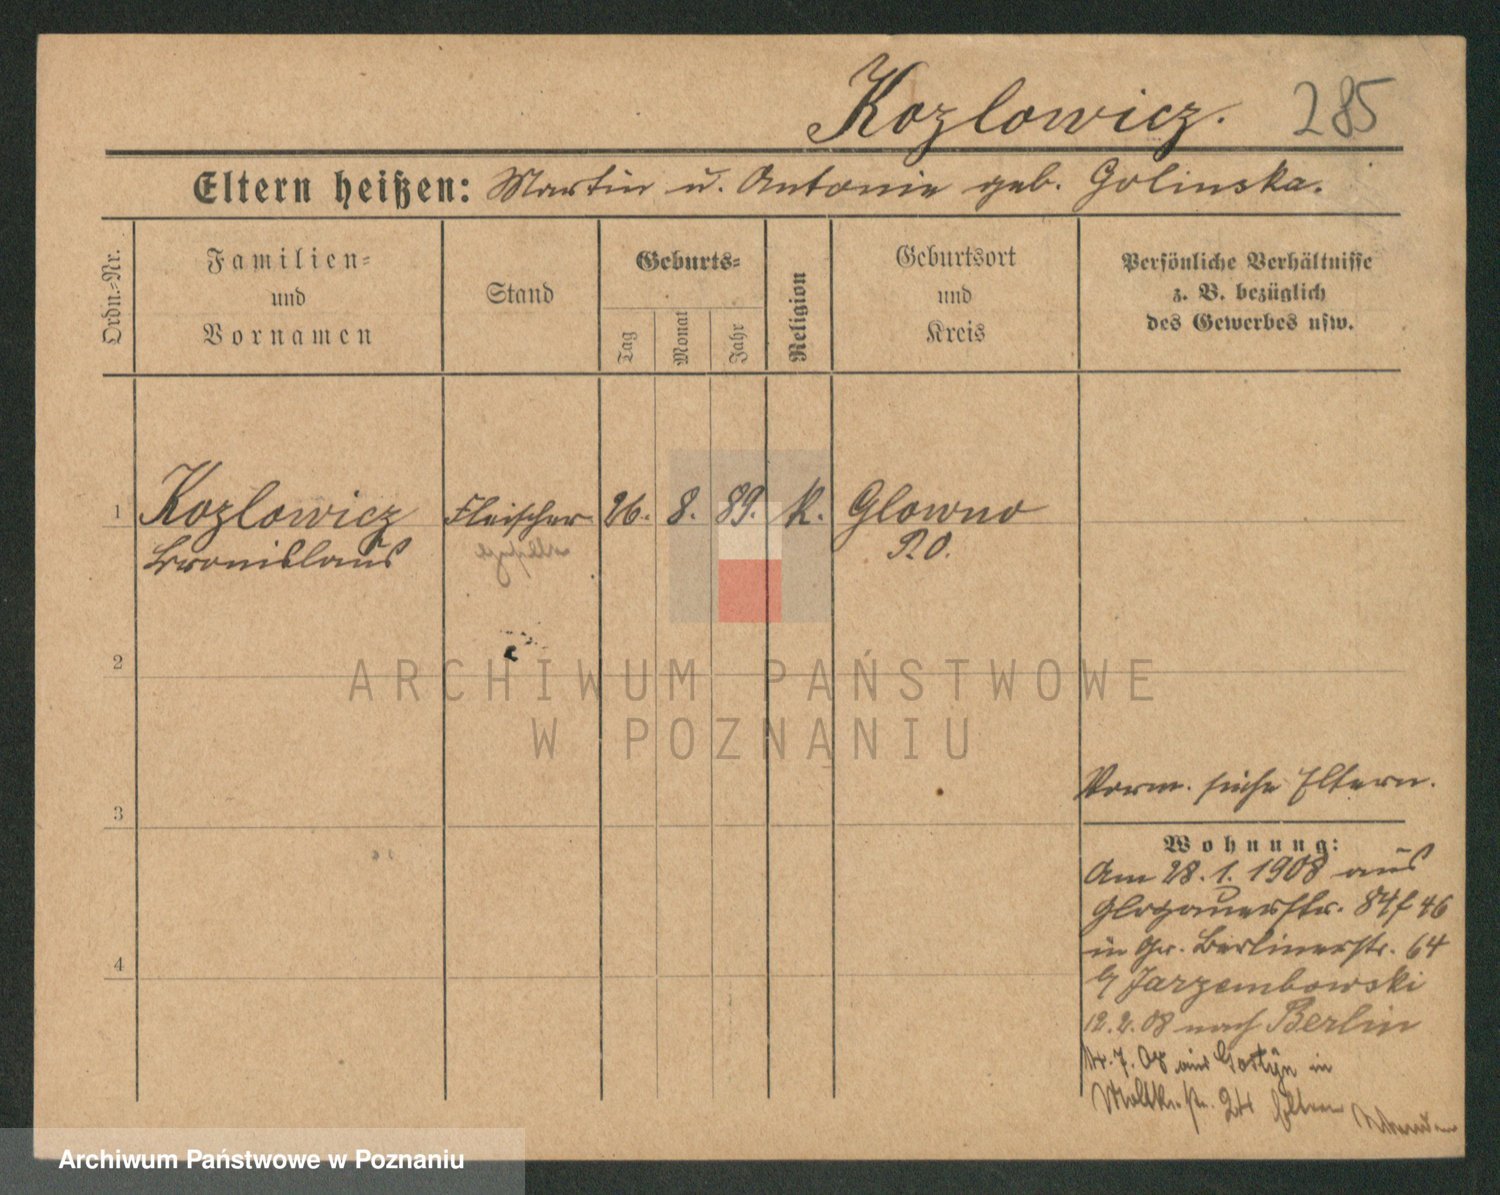 Kozlowicz. 285
Eltern heißen: Martin u. Antonie geb. Golinska.
Ordn.-Nr.
Familien-
und
Vornamen
Stand
Geburts-
Tag
Monat
Jahr
Religion
Geburtsort
und
Kreis
Persönliche Verhältnisse
z. B. bezüglich
des Gewerbes usw.
1 Kozlowicz Fleischer 26. 8. 89. k. Glowno
Bronislaus P.O.
2
ARCHIWUM PAŃSTWOWE
W POZNANIU
Vorm. siehe Eltern.
3
Wohnung:
Am 28.1.1908 aus
Glogauerstr. 84/86
in Gr. Berlinerstr. 64
b/ Jarzembowski
4
12.2.08 nach Berlin
7. 08 aus Gostyn in
Moltkestr. 24 Eltern
Archiwum Państwowe w Poznaniu